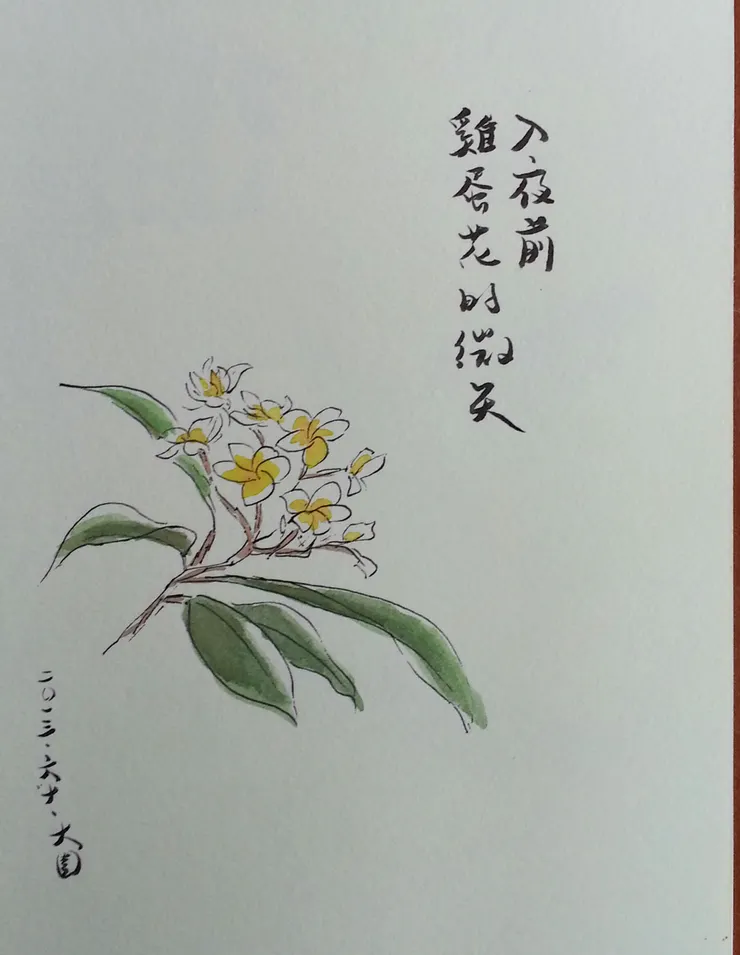 入夜前
雞蛋花的微笑
二〇一三.六.十.大園